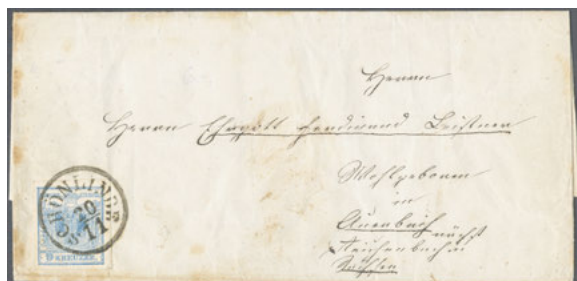 Herrn
Herrn Ehregott Ferdinand Leistner
Wohlgeboren
in
Auerbach
nächst
Reichenbach in
Sachsen
SCHÖNLINDE
20
11
9 KREUZER